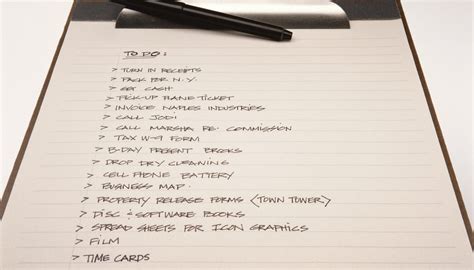 TO DO:
> TURN IN RECEIPTS
> PACK FOR N.Y.
> GET CASH
> PICK-UP PLANE TICKET
> INVOICE NAPLES INDUSTRIES
> CALL JODI
> CALL MARSHA RE: COMMISSION
> TAX W-9 FORM
> B-DAY PRESENT BOOKS
> DROP DRY CLEANING
> CELL PHONE BATTERY
> BUSINESS MAP
> PROPERTY RELEASE FORMS (TOWN TOWER)
> DISC & SOFTWARE BOOKS
> SPREAD SHEETS FOR ICON GRAPHICS
> FILM
> TIME CARDS